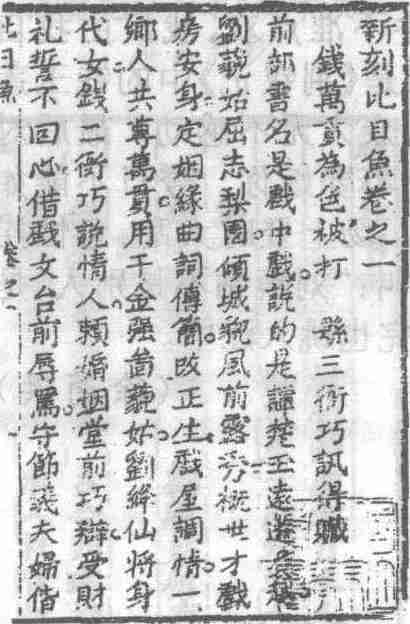 新刻比目魚卷之一
錢萬貫為色被打 縣三衙巧訊得贓
前部書名是戲中戲。說的是譚楚玉遠遊吳越
劉藐姑屈志梨園。傾城貌風前露秀。概世才戲
房安身。定姻緣曲詞傳簡。改正生戲屋調情。一
鄉人共尊萬貫。用千金強啚藐姑。劉絳仙將身
代女。錢二衙巧說情人。賴婚姻堂前巧辯。受財
礼誓不回心。借戲文台前辱罵。守節義夫婦偕
比目魚 卷之一